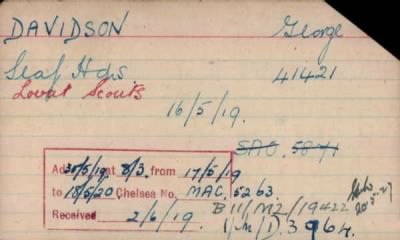 DAVIDSON George
Seaf Hdrs 41421
Lovat Scouts
16/5/19.
SAC. 5841
Ad 30/5/19 at 8/3 from 17/5/19
to 18/5/20 Chelsea No. MAC. 5263
B11/MZ/19422
Received 2/6/19. 1/M/D.3964.
20.5.27